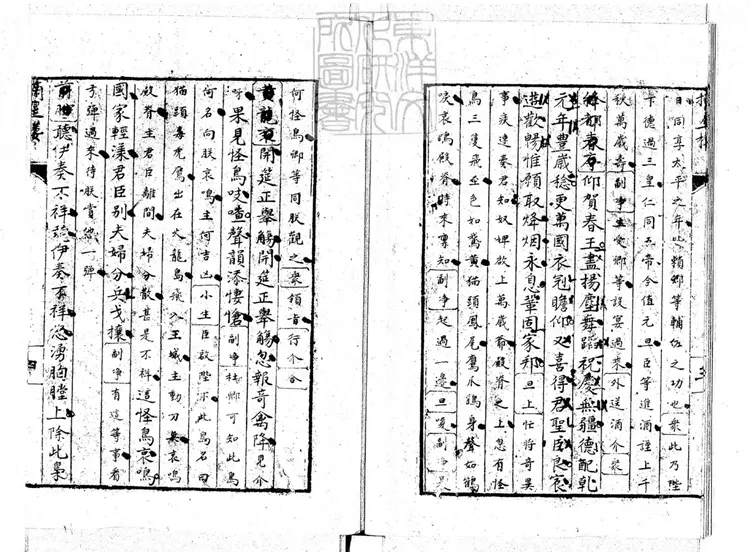 日同享太平之年此賴卿等輔佐之功也衆此乃陛
下德過三皇仁同五帝今值元旦臣等進酒謹上千
秋萬歲壽副净生定卿等設宴過來外送酒介衆
春享仰賀春王盡揚塵舞蹈祝慶無疆德配乾
元年豐歲稔更萬國衣冠瞻仰又喜得君聖臣良衮
遊歡暢惟願取烽烟永息鞏固家邦旦上忙將奇異
事疾速奏君知奴婢啟上萬歲爺殿脊之上忽有怪
鳥三隻飛至色如鶯黃猫頭鳳尾鷹爪鷄身聲如鶴
唳哀鳴殿脊時來禀知副净起過一邊旦
何怪鳥卿等同朕觀之衆領旨行介合
黃龍袞開筵正舉觴開筵正舉觴忽報奇禽降見介
呀果見怪鳥吱喳聲韻添悽愴副净杜卿可知此鳥
何名向朕哀鳴主何吉凶小生臣啟陛下此鳥名曰
猫頭毒虎鷹出在火龍島飛入王城主動刀兵哀鳴
殿脊主君臣離間夫婦分散甚是不利合這怪鳥哀鳴
國家輕漾君臣別夫婦分兵戈攘副净有這等事看
弓彈過來待朕賞他一彈
前腔聽伊奏不祥聽伊奏不祥忿湧胸膛上除此梟